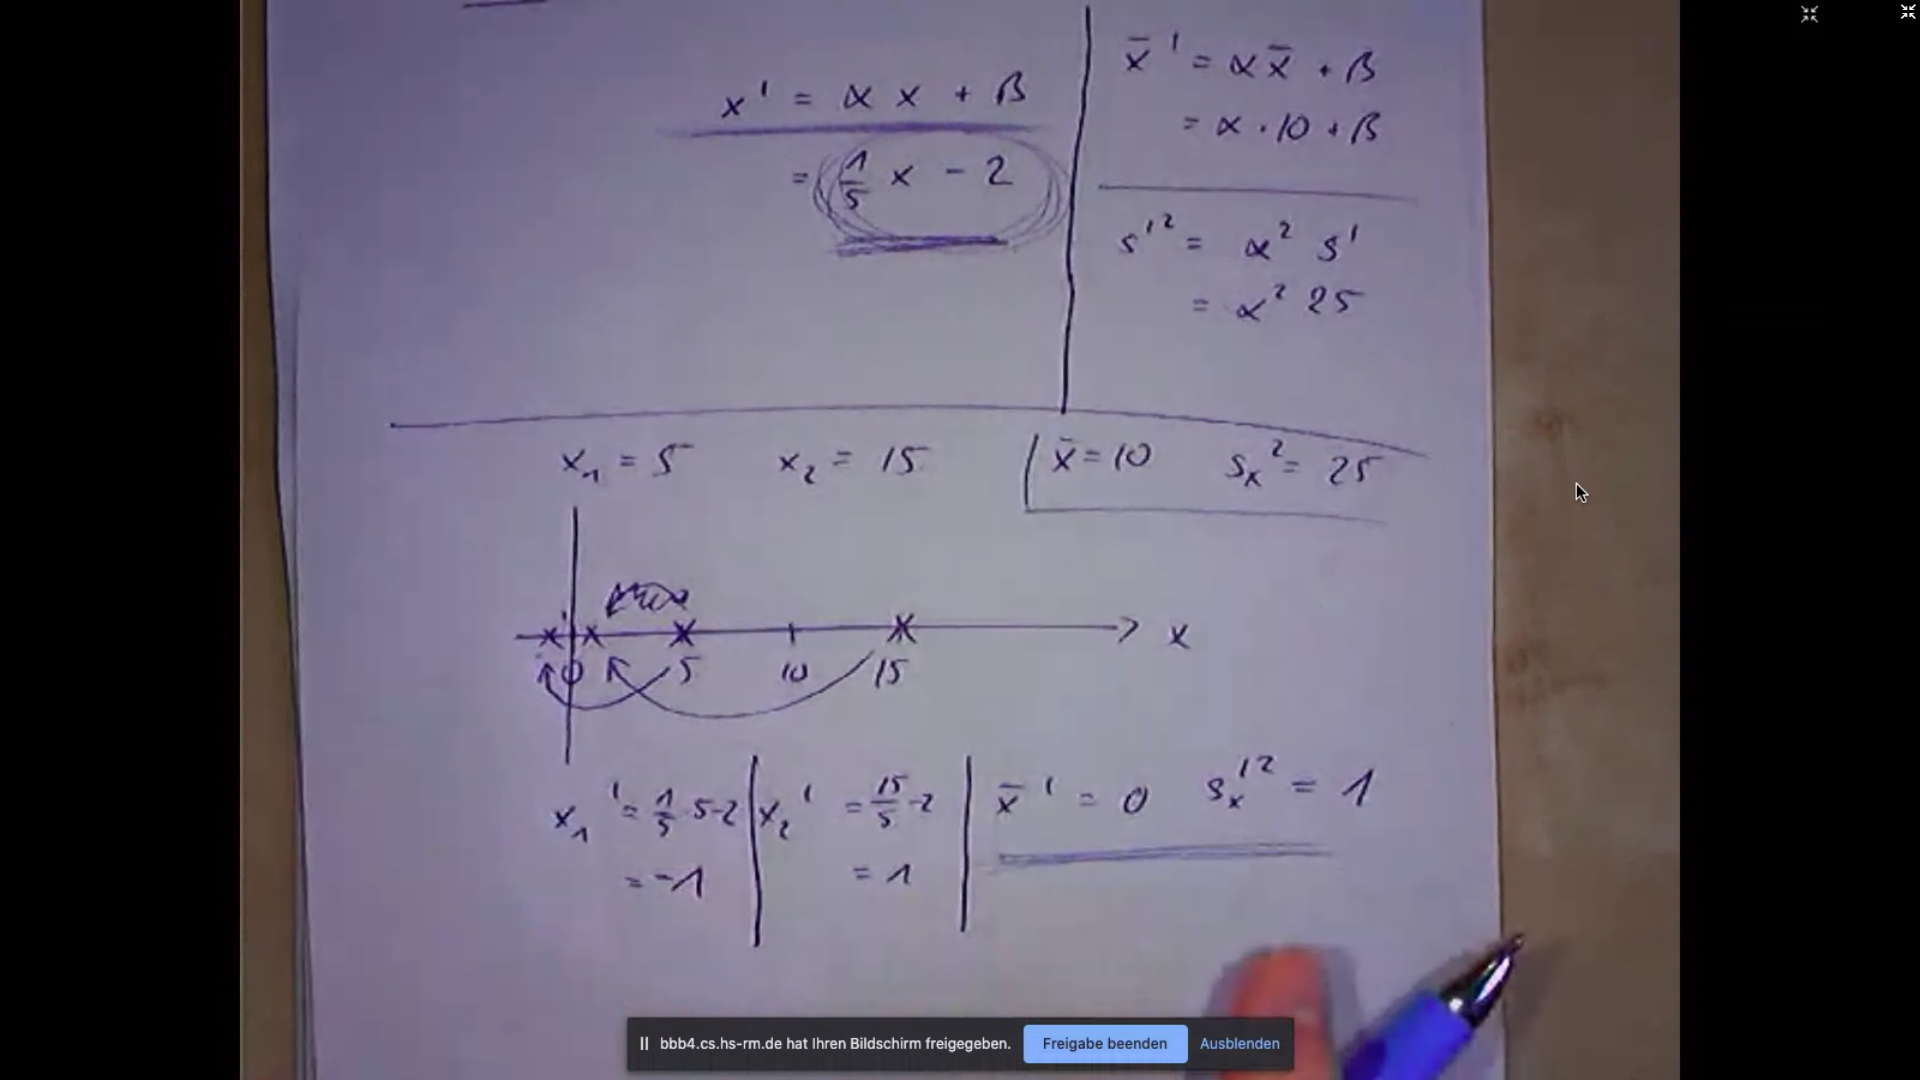 x' = α x + β
= 1/5 x - 2
x̄' = α x̄ + β
= α · 10 + β
s'² = α² s'
= α² 25
x₁ = 5 x₂ = 15 x̄ = 10 sₓ² = 25
0 5 10 15 x
x₁' = 1/5 · 5 - 2
= -1
x₂' = 15/5 - 2
= 1
x̄' = 0 sₓ'² = 1
bbb4.cs.hs-rm.de hat Ihren Bildschirm freigegeben. Freigabe beenden Ausblenden